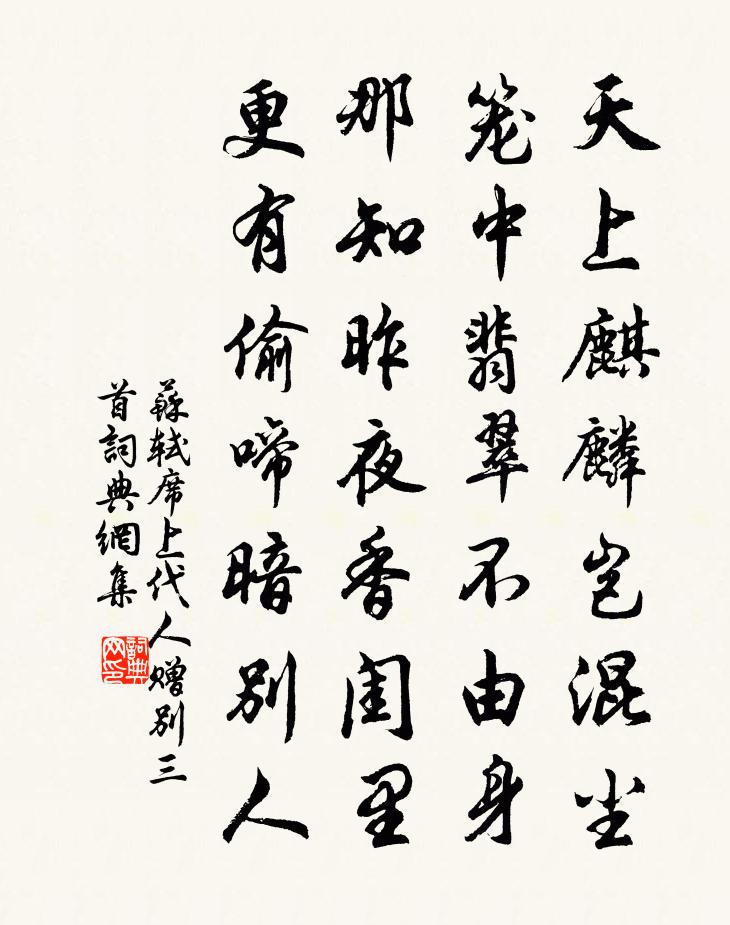 天上麒麟豈混尘
笼中翡翠不由身
那知昨夜香闺里
更有偷啼暗别人
蘇轼席上代人赠别三
首詞典網集
詞典
网印